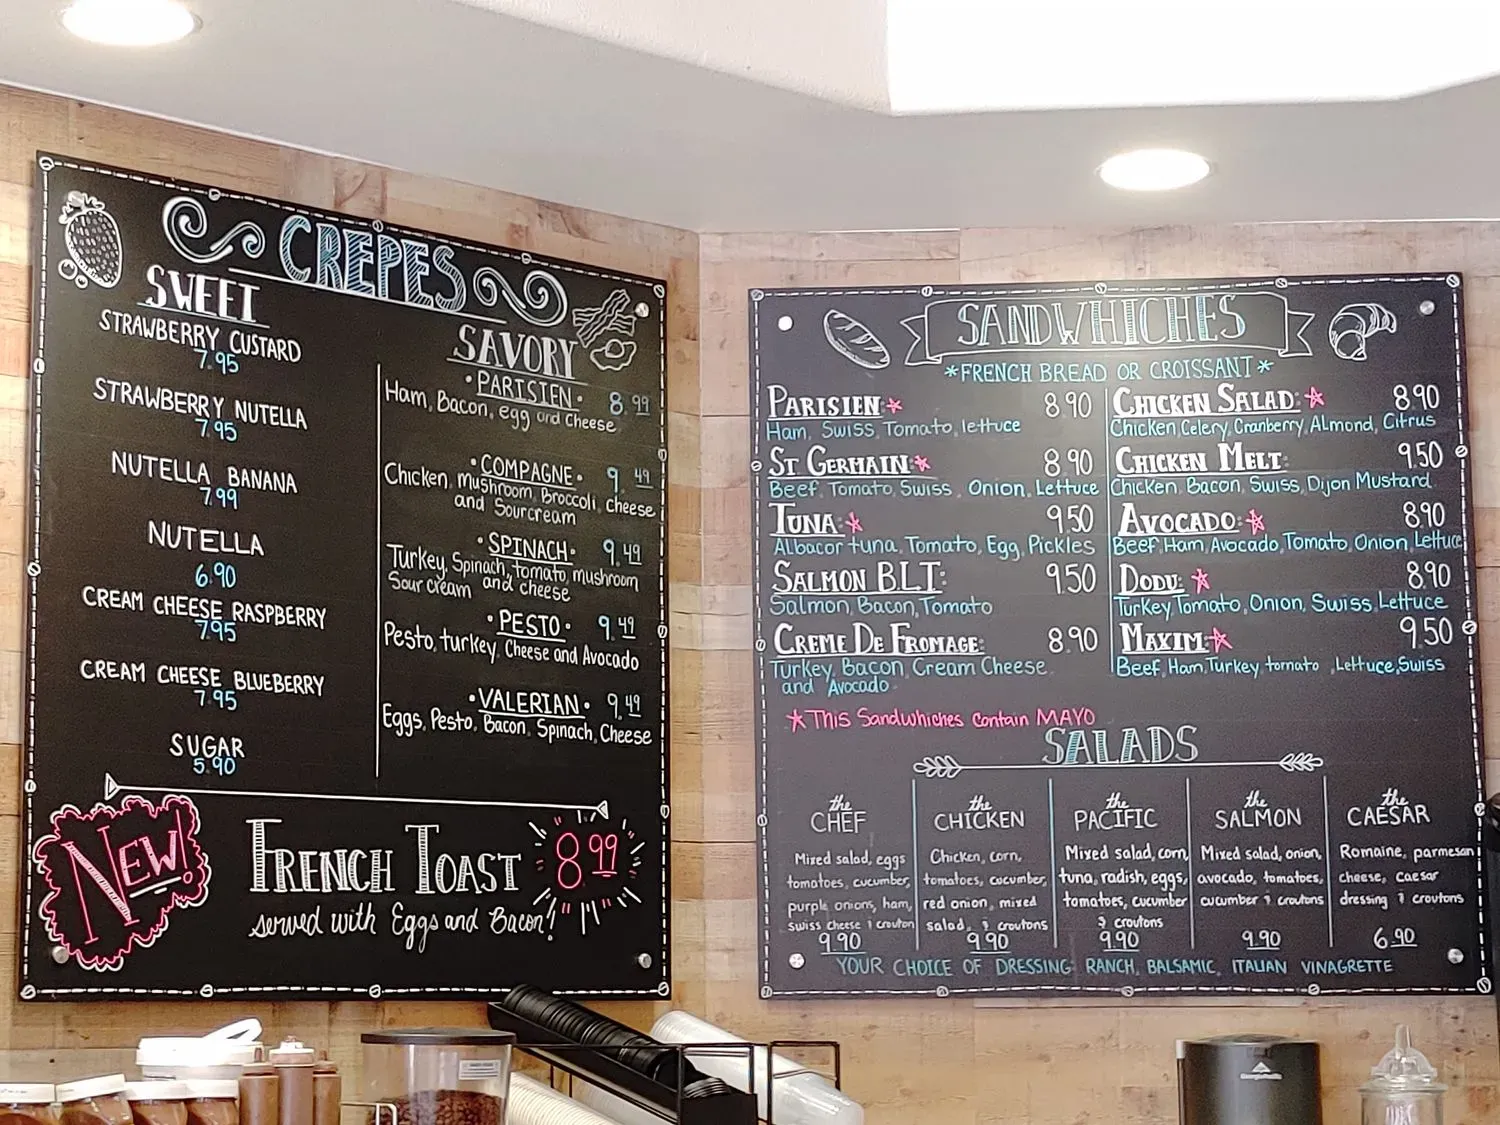 CREPES
SWEET
STRAWBERRY CUSTARD
7.95
STRAWBERRY NUTELLA
7.95
NUTELLA BANANA
7.99
NUTELLA
6.90
CREAM CHEESE RASPBERRY
7.95
CREAM CHEESE BLUEBERRY
7.95
SUGAR
5.90
SAVORY
• PARISIEN • 8.99
Ham, Bacon, egg and Cheese
• COMPAGNE • 9.49
Chicken, mushroom, Broccoli, cheese
and Sourcream
• SPINACH • 9.49
Turkey, Spinach, tomato, mushroom
Sour cream and cheese
• PESTO • 9.49
Pesto, turkey, Cheese and Avocado
• VALERIAN • 9.49
Eggs, Pesto, Bacon, Spinach, Cheese
NEW!
FRENCH TOAST 8.99
served with Eggs and Bacon!
SANDWHICHES
*FRENCH BREAD OR CROISSANT*
PARISIEN:* 8.90
Ham, Swiss, Tomato, lettuce
ST GERMAIN:* 8.90
Beef, Tomato, Swiss, Onion, Lettuce
TUNA:* 9.50
Albacor tuna, Tomato, Egg, Pickles
SALMON B.L.T: 9.50
Salmon, Bacon, Tomato
CREME DE FROMAGE: 8.90
Turkey, Bacon, Cream Cheese
and Avocado
CHICKEN SALAD:* 8.90
Chicken, Celery, Cranberry, Almond, Citrus
CHICKEN MELT: 9.50
Chicken, Bacon, Swiss, Dijon Mustard
AVOCADO:* 8.90
Beef, Ham, Avocado, Tomato, Onion, Lettuce
DODU:* 8.90
Turkey, Tomato, Onion, Swiss, Lettuce
MAXIM:* 9.50
Beef, Ham, Turkey, tomato, Lettuce, Swiss
*This Sandwhiches Contain MAYO
SALADS
the
CHEF
Mixed salad, eggs
tomatoes, cucumber,
purple onions, ham,
swiss cheese & crouton
9.90
the
CHICKEN
Chicken, corn,
tomatoes, cucumber,
red onion, mixed
salad, & croutons
9.90
the
PACIFIC
Mixed salad, corn,
tuna, radish, eggs,
tomatoes, cucumber
& croutons
9.90
the
SALMON
Mixed salad, onion,
avocado, tomatoes,
cucumber & croutons
9.90
the
CAESAR
Romaine, parmesan
cheese, caesar
dressing & croutons
6.90
YOUR CHOICE OF DRESSING: RANCH, BALSAMIC, ITALIAN VINAGRETTE